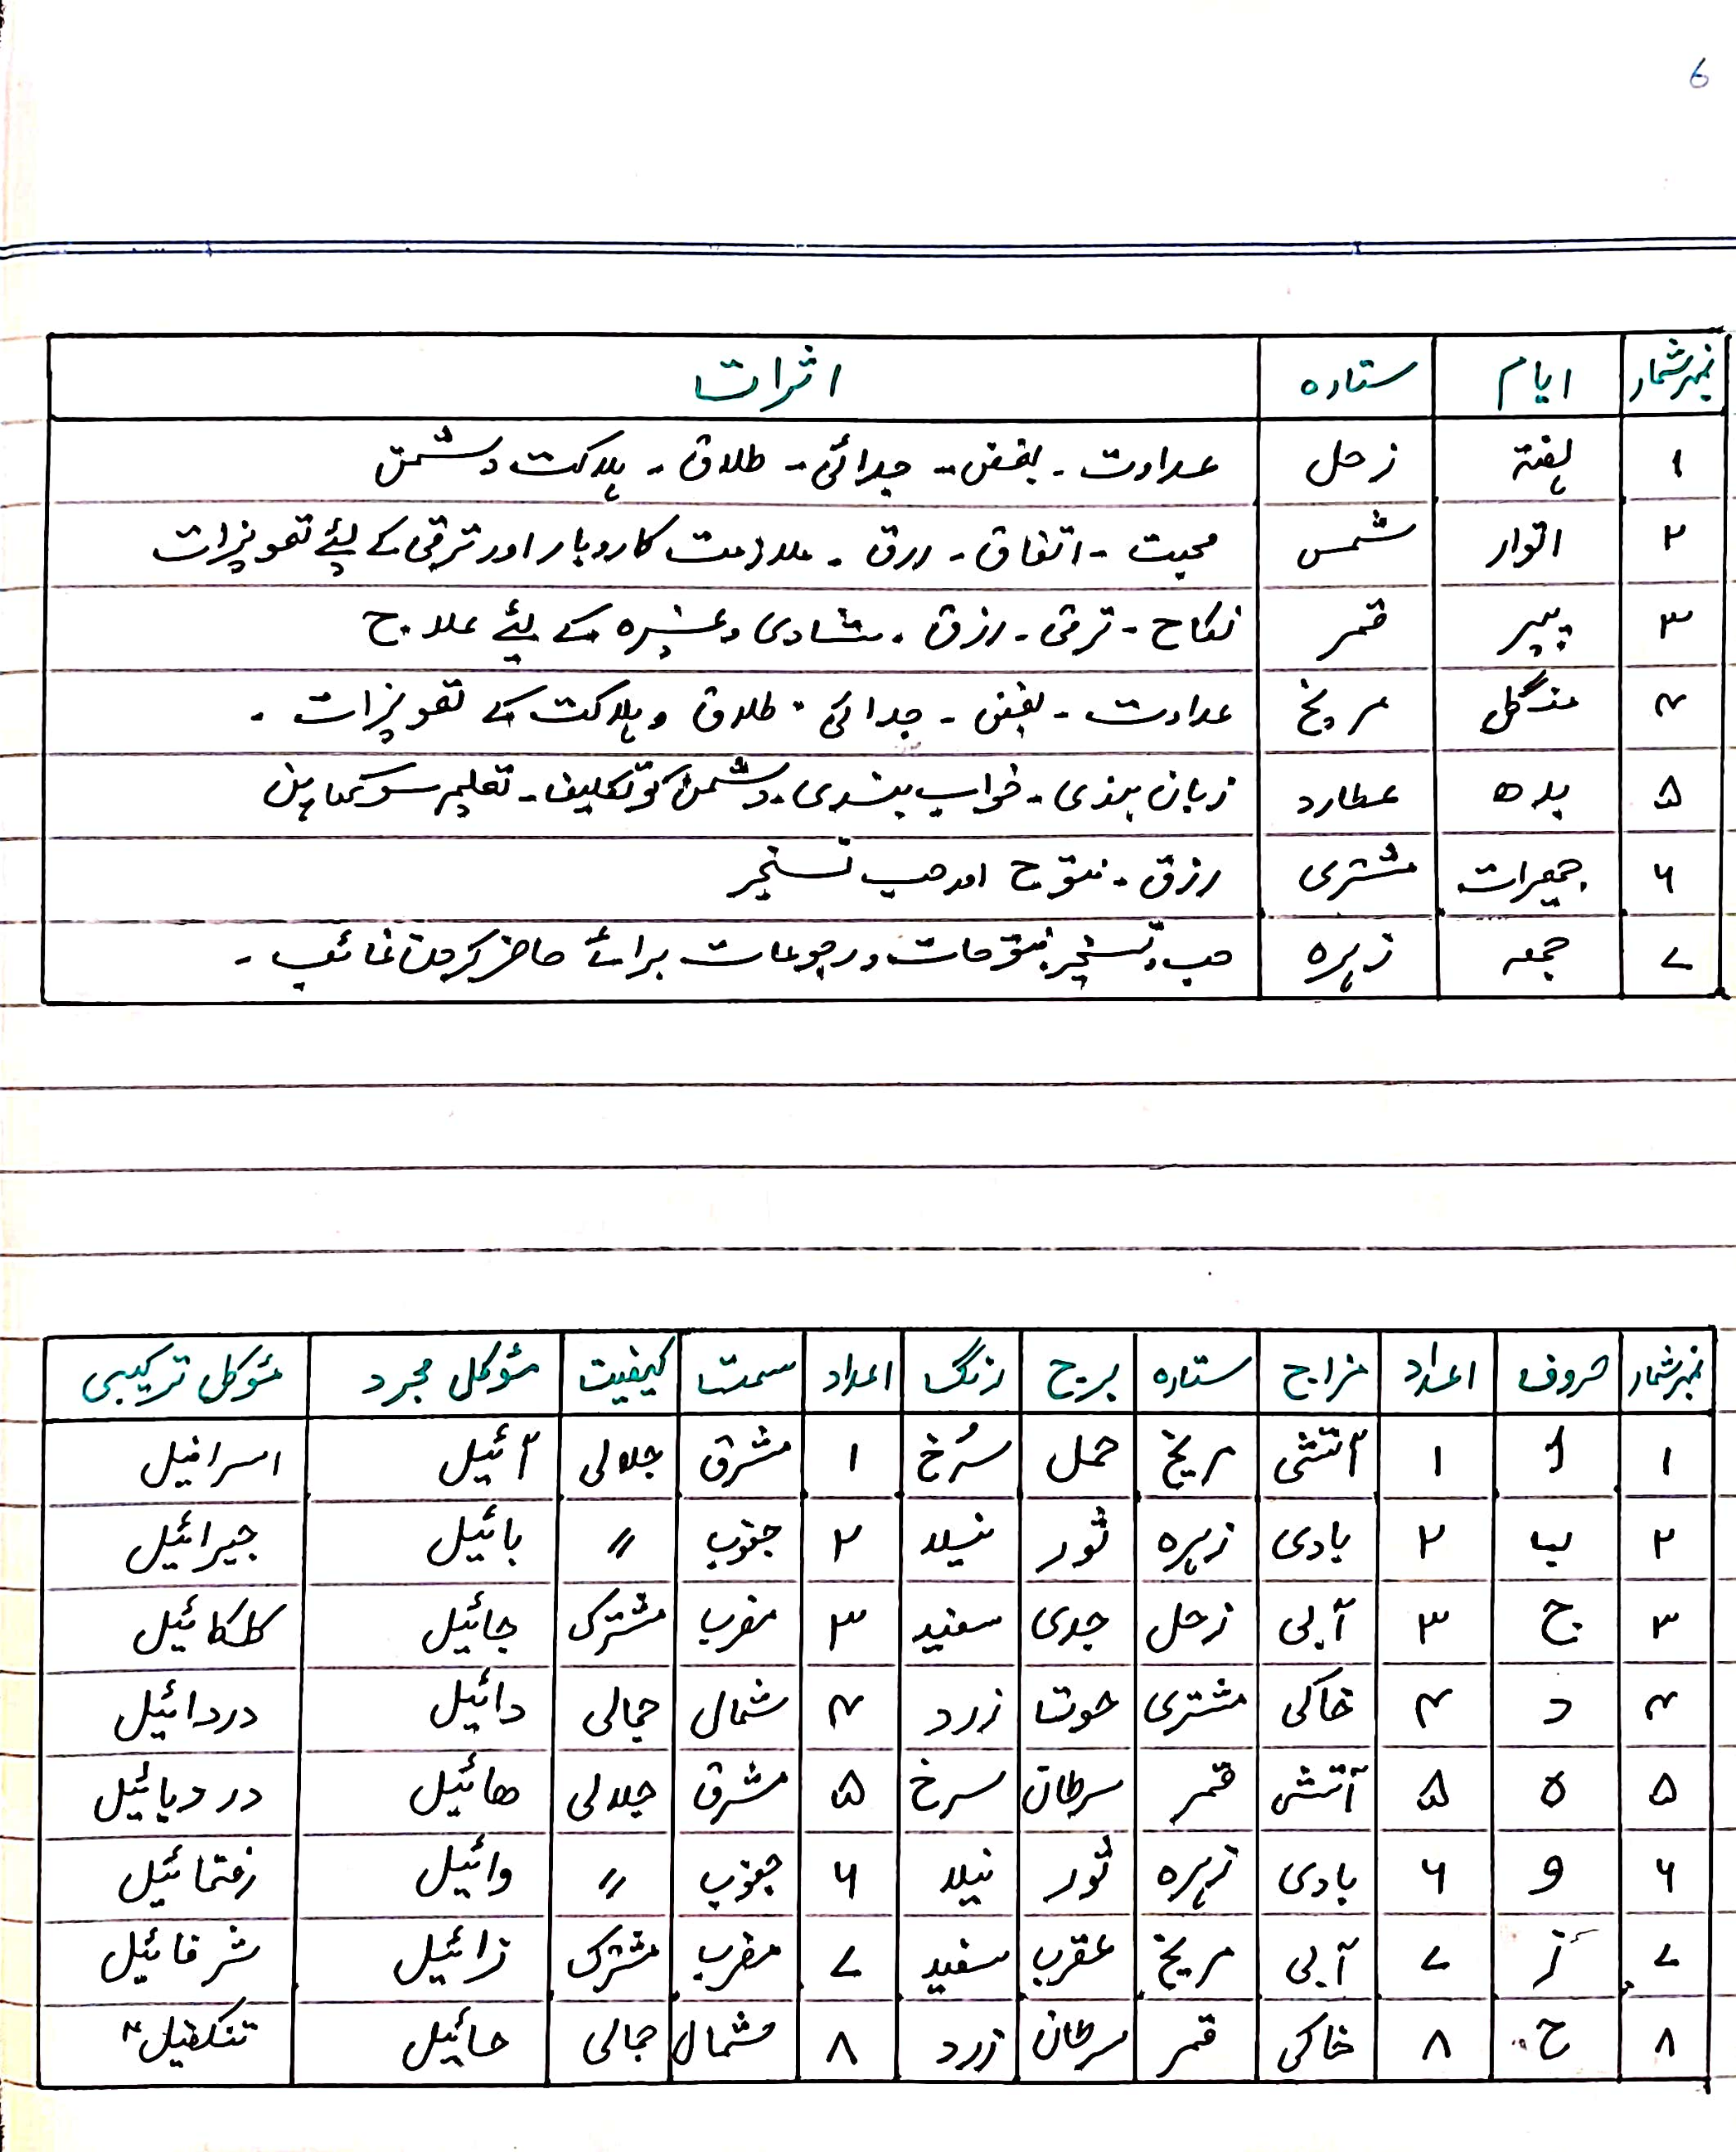 6
نمبرشمار ایام ستارہ اثرات
۱ ہفتہ زحل عداوت - بغض - جدائی - طلاق - ہلاکت دشمن
۲ اتوار شمس محبت - اتفاق - رزق - ملازمت کاروبار اور ترقی کے لیئے تعویزات
۳ پیر قمر نکاح - ترقی - رزق - شادی وغیرہ کے لیئے علاج
۴ منگل مریخ عداوت - بغض - جدائی - طلاق و ہلاکت کے تعویزات -
۵ بدھ عطارد زبان بندی - خواب بندی - دشمن کو تکلیف - تعلیم
۶ جمعرات مشتری رزق - فتوح اور حب تسخیر
۷ جمعہ زہرہ حب و تسخیر فتوحات و رجوعات برائے حاضر کردن غائب -
نمبرشمار حروف اعداد مزاج ستارہ برج رنگ اعداد سمت کیفیت مؤکل مجرد مؤکل ترکیبی
۱ أ ۱ آتشی مریخ حمل سُرخ ۱ مشرق جلالی آئیل اسرافیل
۲ ب ۲ بادی زہرہ ثور نیلا ۲ جنوب 〃 بائیل جبرائیل
۳ ج ۳ آبی زحل جدی سفید ۳ مغرب مشترک جائیل کلکائیل
۴ د ۴ خاکی مشتری حوت زرد ۴ شمال جمالی دائیل دردائیل
۵ ہ ۵ آتش قمر سرطان سرخ ۵ مشرق جلالی ھائیل دردیائیل
۶ و ۶ بادی زہرہ ثور نیلا ۶ جنوب 〃 وائیل رفتمائیل
۷ ز ۷ آبی مریخ عقرب سفید ۷ مغرب مشترک زائیل شرفائیل
۸ ح ۸ خاکی قمر سرطان زرد ۸ شمال جمالی حائیل تنکفیل